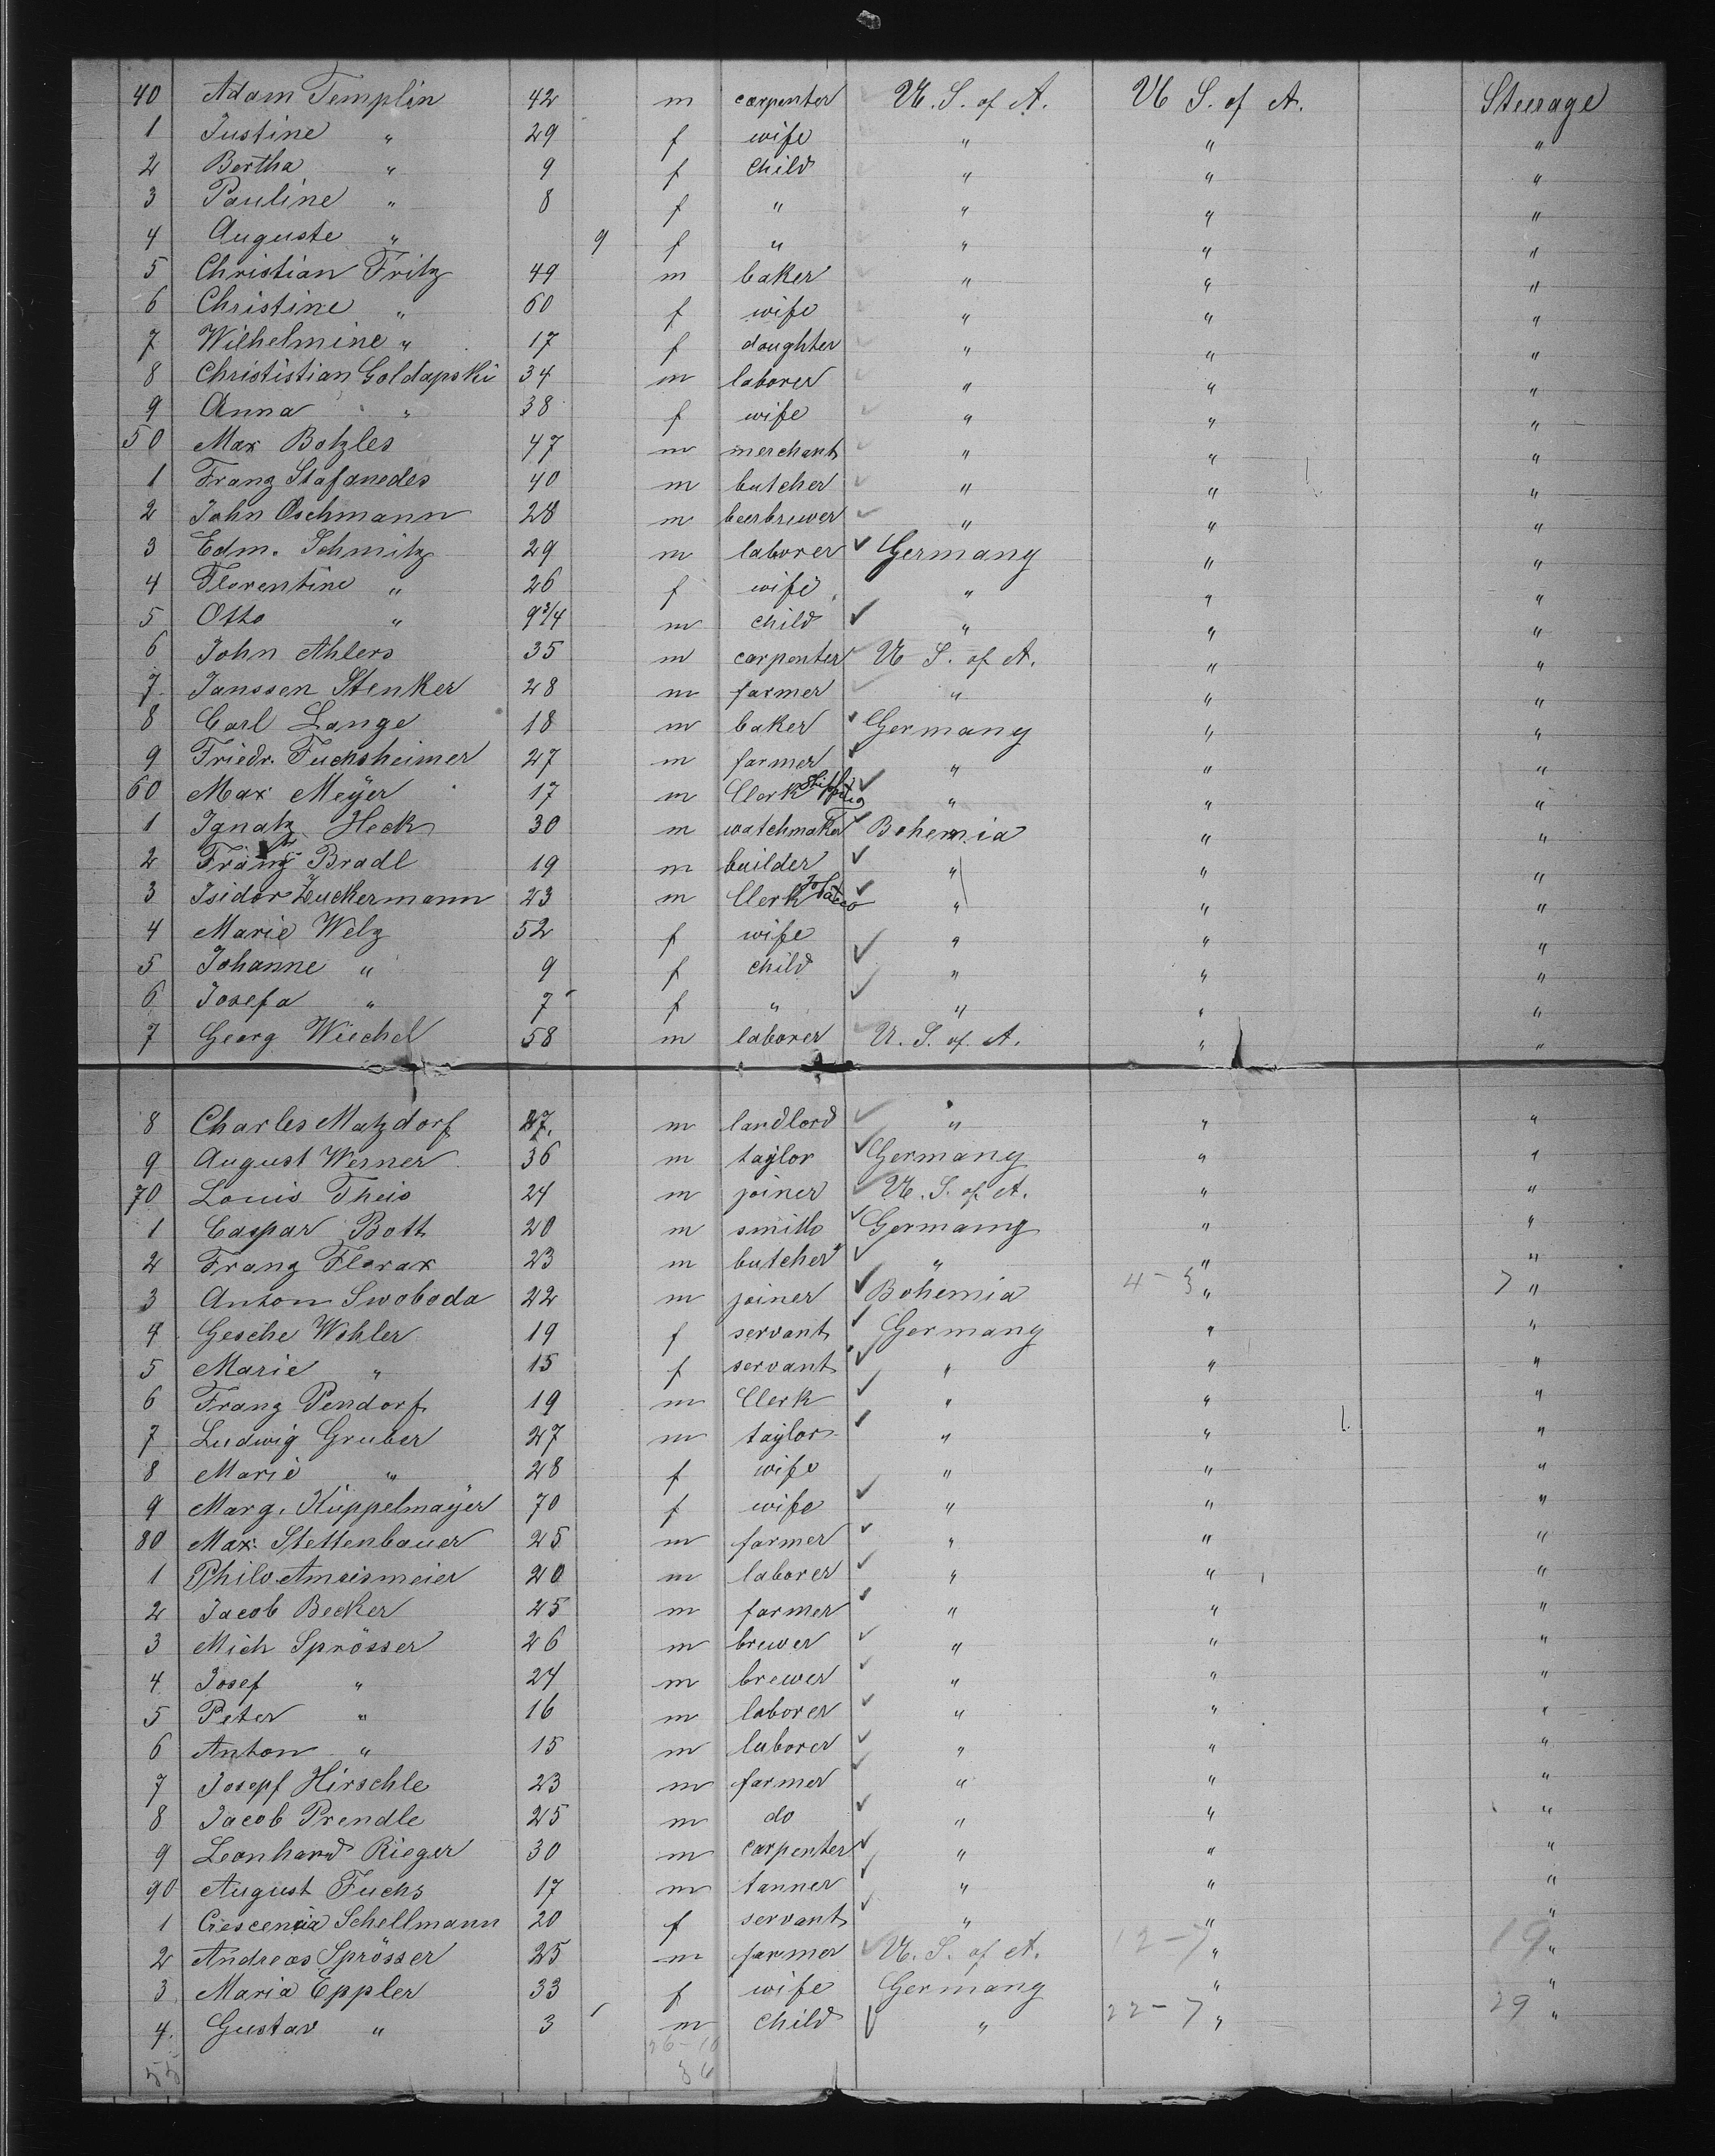 40 Adam Templin 42 m carpenter U. S. of A. U S. of A. Steerage
1 Justine " 29 f wife " " "
2 Bertha " 9 f child " " "
3 Pauline " 8 f " " " "
4 Auguste " 9 f " " " "
5 Christian Fritz 49 m baker " " "
6 Christine " 60 f wife " " "
7 Wilhelmine " 17 f daughter " " "
8 Christistian Goldapski 34 m laborer " " "
9 Anna " 38 f wife " " "
50 Max Botzles 47 m merchant " " "
1 Franz Stafanedes 40 m butcher " " "
2 John Oschmann 28 m beerbrewer " " "
3 Edm. Schmitz 29 m laborer Germany " "
4 Florentine " 26 f wife " " "
5 Otto " 9 3/4 m child " " "
6 John Ahlers 35 m carpenter U S. of A. " "
7 Janssen Stenker 28 m farmer " " "
8 Carl Lange 18 m baker Germany " "
9 Friedr. Fuchsheimer 27 m farmer " " "
60 Max Meÿer 17 m Clerk " " "
1 Ignatz Heck 30 m watchmaker Bohemia " "
2 Franz Bradl 19 m builder " " "
3 Isidor Zuckermann 23 m Clerk " " "
4 Marie Welz 52 f wife " " "
5 Johanne " 9 f child " " "
6 Josefa " 7 f " " " "
7 Georg Wiechel 58 m laborer U. S. of A. " "
8 Charles Matzdorf 27. m landlord " " "
9 August Werner 36 m taÿlor Germany " "
70 Louis Theis 24 m joiner U. S. of A. " "
1 Caspar Bott 20 m smith Germany " "
2 Franz Florax 23 m butcher " " "
3 Anton Swoboda 22 m joiner Bohemia 4-3 " 7 "
4 Gesche Wohler 19 f servant Germany " "
5 Marie " 15 f servant " " "
6 Franz Pendorf 19 m Clerk " " "
7 Ludwig Gruber 27 m taÿlor " " "
8 Marie " 28 f wife " " "
9 Marg. Küppelmaÿer 70 f wife " " "
80 Max Stettenbauer 25 m farmer " " "
1 Philo Ameismeier 20 m laborer " " "
2 Jacob Becker 25 m farmer " " "
3 Mich Sprösser 26 m brewer " " "
4 Josef " 24 m brewer " " "
5 Peter " 16 m laborer " " "
6 Anton " 15 m laborer " " "
7 Josepf Hirschle 23 m farmer " " "
8 Jacob Prendle 25 m do " " "
9 Leonhard Rieger 30 m carpenter " " "
90 August Fuchs 17 m tanner " " "
1 Crescenzia Schellmann 20 f servant " " "
2 Andreas Sprösser 25 m farmer U. S. of A. 12-7 " 19 "
3 Maria Eppler 33 f wife Germany " "
4. Gustav " 3 m child " 22-7 " 29 "
55 26-10
36